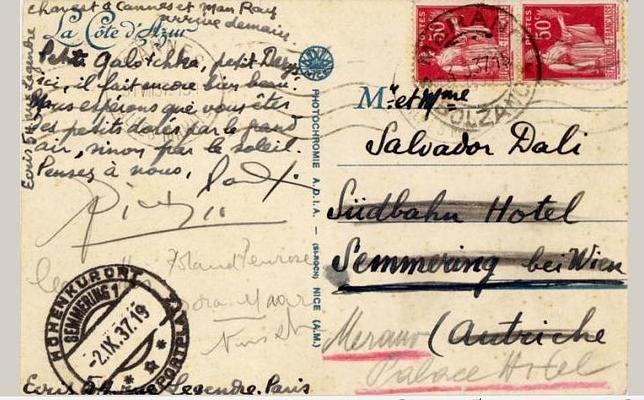 change à Cannes et Man Ray
arrive demain
La Côte d'Azur
Petite Galotchka, petit Dali,
ici, il fait encore bien beau.
Nous espérons que vous êtes
des petits dorés par le grand
air, sinon par le soleil.
Pensez à nous, Paul
Picasso
Roland Penrose
Dora Maar
Nusch
Ecris 54 rue Legendre
HOHENKURORT
SEMMERING 1
-2.IX.37.19
Ecris 54 rue Legendre. Paris
PHOTOCHROMIE A.D.I.A. — NICE (A.M.)
POSTES
50c
50c
BOLZANO
Mr et Mme
Salvador Dali
Südbahn Hotel
Semmering bei Wien
(Autriche
Merano
Palace Hotel